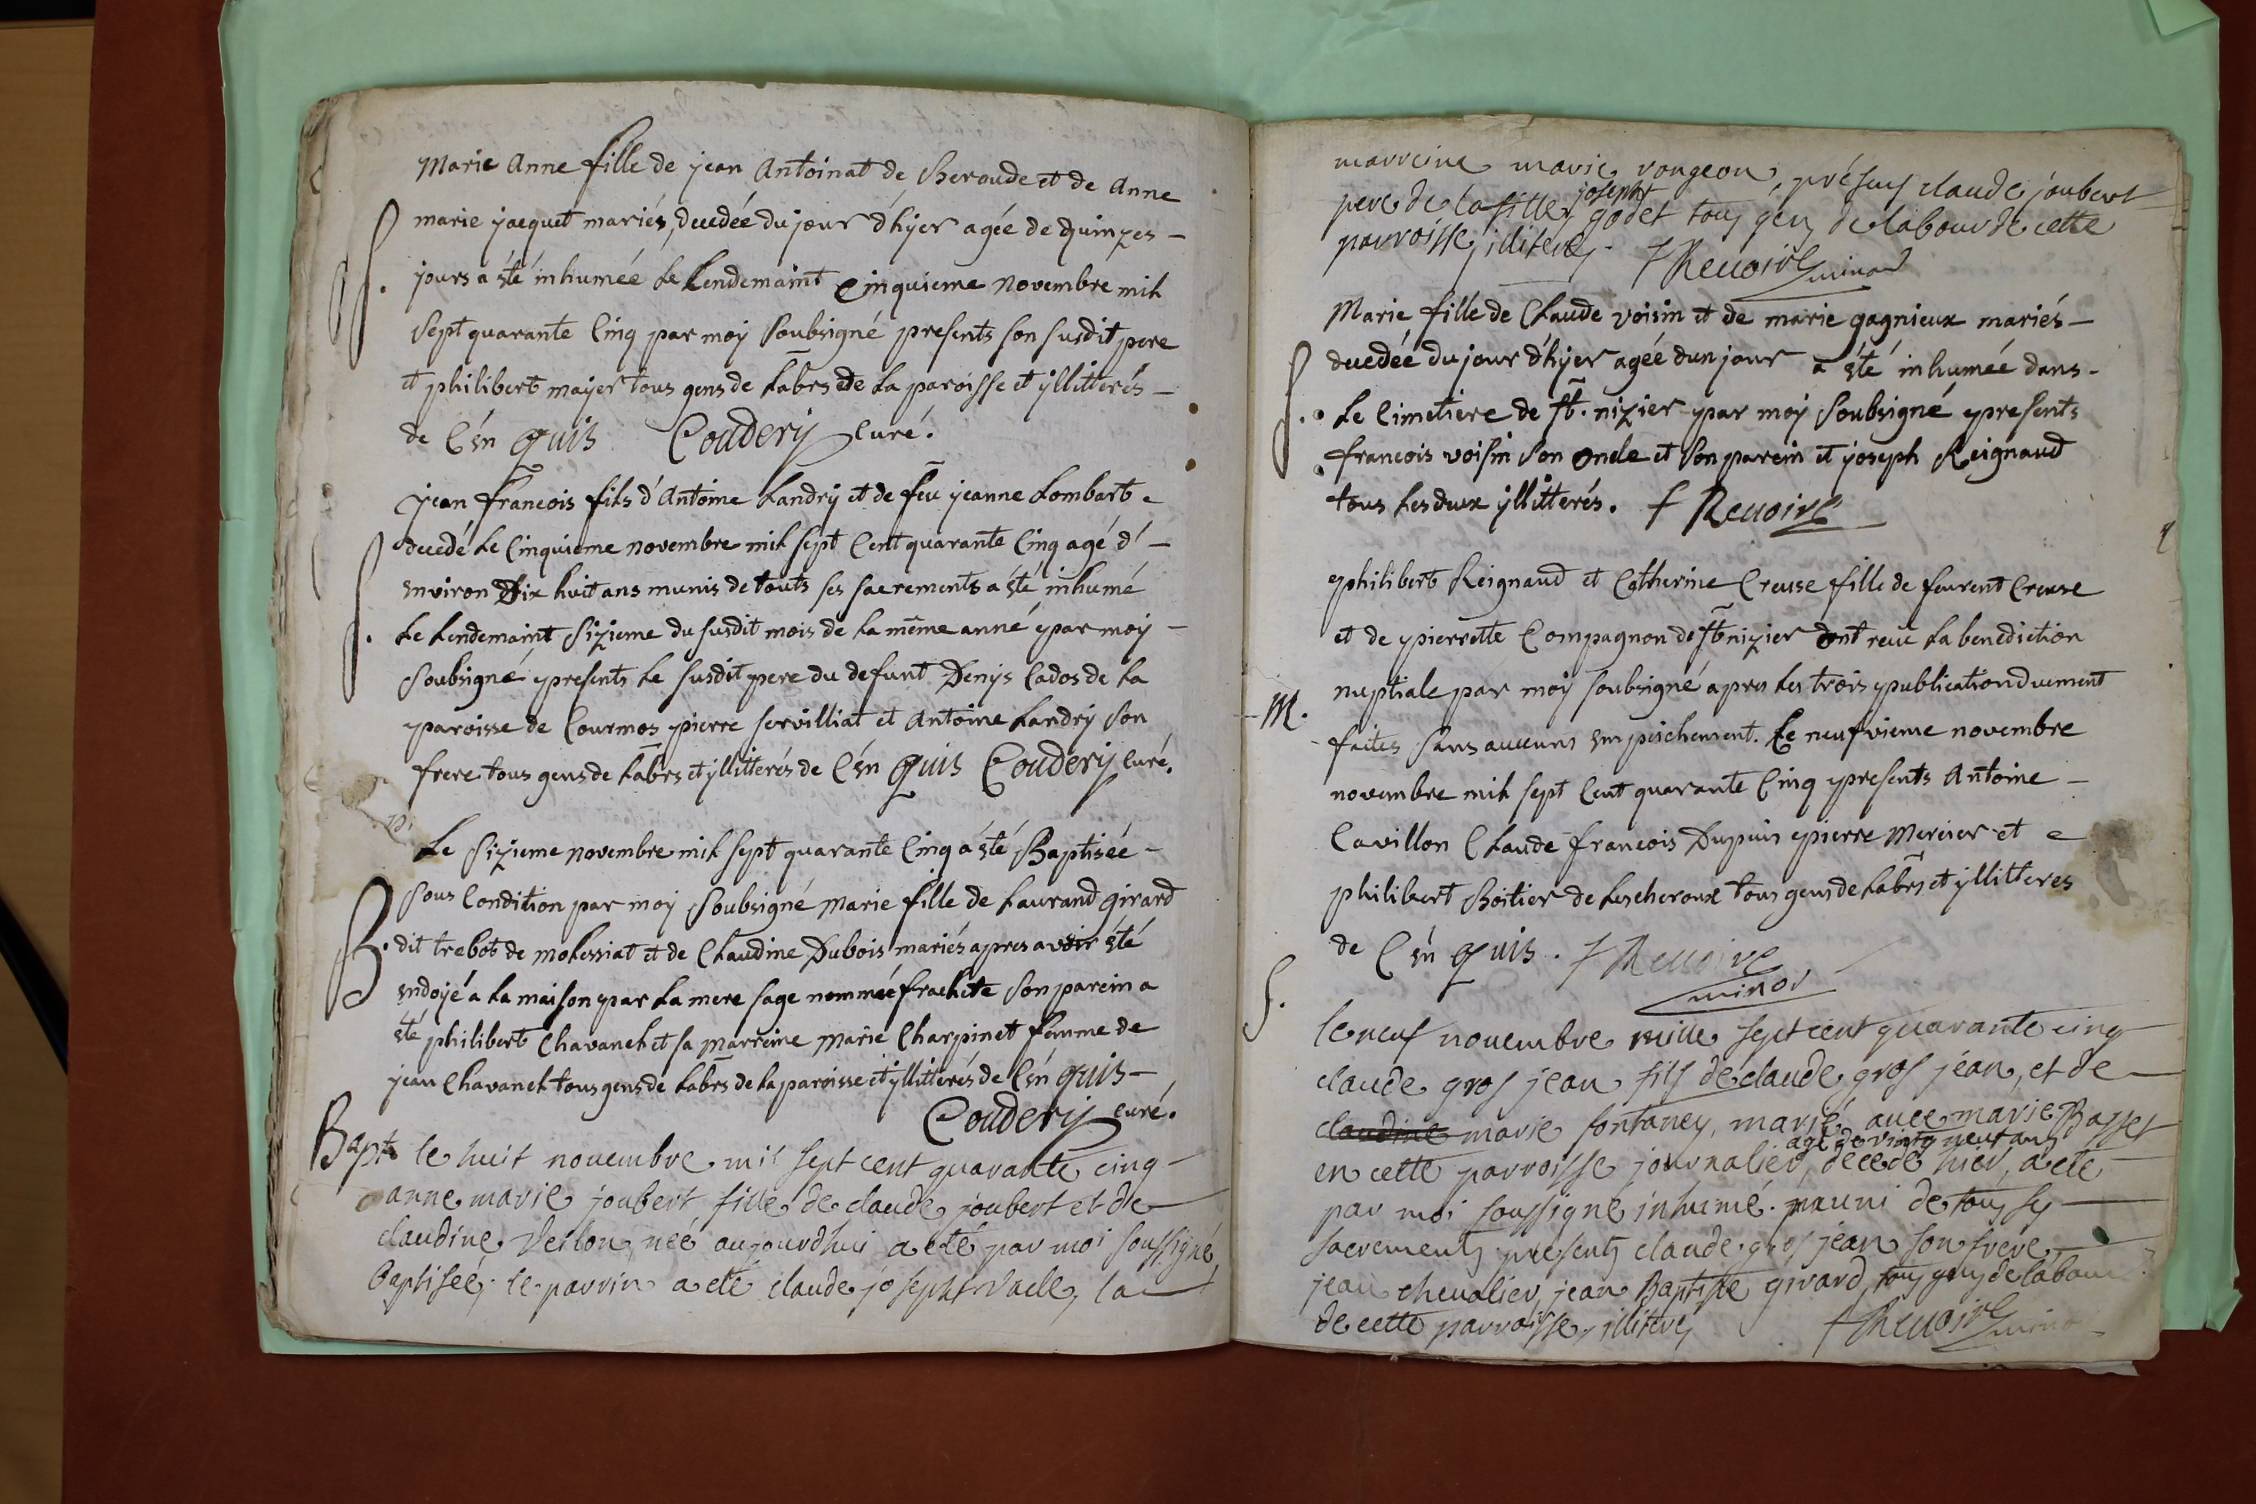 Marie Anne fille de jean Antoinat de Beroude et de Anne
marie jacquet mariés, decedée du jour d'hÿer agée de quinzes –
S. jours a été inhumée Le Lendemaint Cinquieme novembre mil
sept quarante Cinq par moÿ soubsigné presents son susdit pere
et philibert mayer tous gens de Labrs de La paroisse et ÿllitterés –
de Cên quis Coudery Curé.
jean francois fils d'Antoine Landrÿ et de feu jeanne Lombart
decedé Le Cinquieme novembre mil sept Cent quarante Cinq agé d' –
environ Dix huit ans munis de touts ses sacrements a été inhumé
S. Le Lendemaint Sizieme du susdit mois de La même anné par moÿ –
soubsigné presents Le susdit pere du defunt Denÿs Cados de La
paroisse de Courmos pierre servilliat et Antoine Landrÿ son
frere tous gens de Labrs et ÿllitterés de Cên quis Coudery Curé.
Le Sizieme novembre mil sept quarante Cinq a été Baptisée –
sous Condition par moÿ soubsigné Marie fille de Laurand girard
B. dit trebot de molessiat et de Claudine Dubois mariés apres avoir été
endoÿé a La maison par La mere sage nommée frachete son parein a
été philibert Chavanel et sa marreine Marie Charpinet femme de
jean Chavanel tous gens de Labrs de La paroisse et ÿllitterés de Cên quis –
Coudery Curé.
Bapt. le huit novembre mil sept cent quarante cinq
anne marie joubert fille de claude joubert et de
claudine Veilon née aujourdhui a eté par moi soussigné
Baptiseé. le parrin a eté claude joseph vacle, la
marreine marie rongeon, présens claude joubert
pere de la fille, joseph godet tous gens de labour de cette
parroisse illiterés. f Renoire minor
Marie fille de Claude voisin et de marie gagnieux mariés –
decedéé du jour d'hÿer agéé dun jour a été inhuméé dans –
S. Le Cimetiere de st. nizier par moÿ soubsigné presents
francois voisin son oncle et son parein et joseph Reignaud
tous Les deux ÿllitterés. f Renoire
philibert Reignaud et Catherine Creuse fille de feurent Creuse
et de pierrette Compagnon de st nizier ont reçu La benediction
M. nuptiale par moÿ soubsigné apres Les trois publication duement
faites sans aucuns empeichement. Le neufvieme novembre
novembre mil sept Cent quarante Cinq presents Antoine –
Cavillon Claude francois Dupuis pierre Mercier et
philibert Boitier de Lescheroux tous gens de Labrs et ÿllitteres
de Cên quis. f Renoire
minor
S. le neuf novembre mille sept cent quarante cinq
claude gros jean fils de claude gros jean, et de
claudine marie fontaney, marié avec marie Basset
en cette parroisse journalier, agé de vingt neuf ans decedé hier, a eté
par moi soussigné inhumé. muni de tous ses
sacrements presents claude gros jean son frere
jean chevalier, jean Baptiste girard tous gens de labour
de cette parroisse, illiterés f Renoire minor